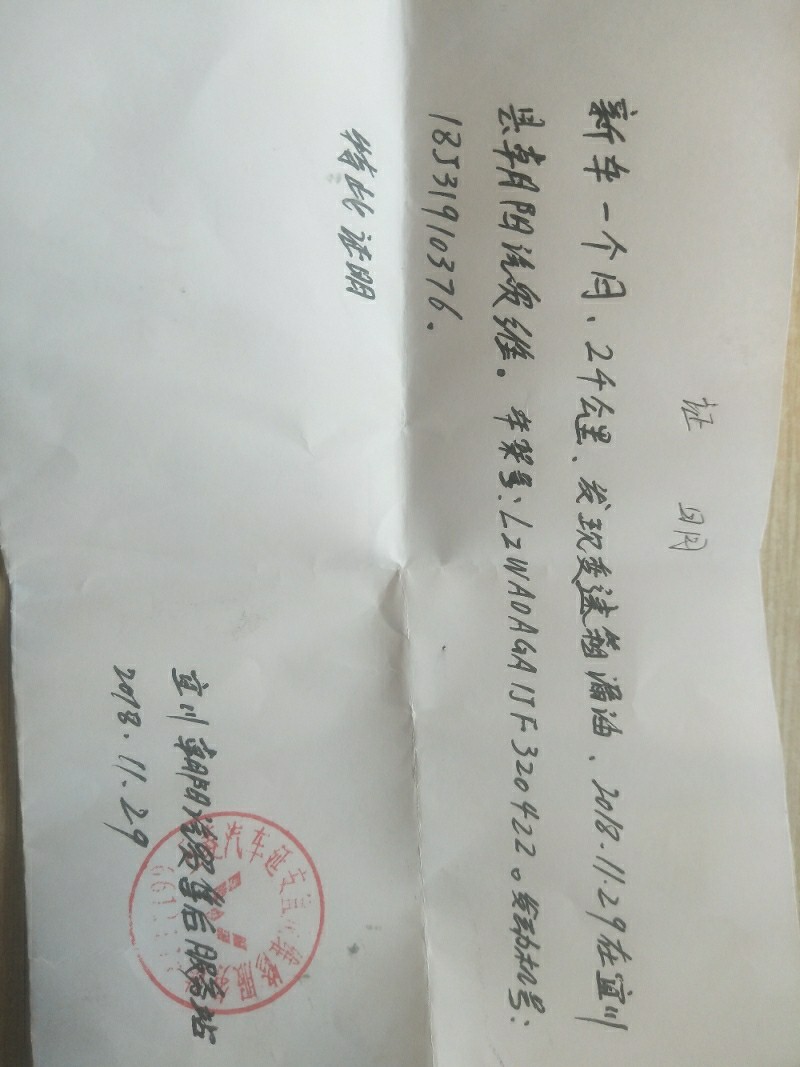 证 明
新车一个月、2千公里、发现变速箱漏油、2018.11.29在宜川
县朝阳汽贸维。车架号:LZWADAGA1JF320422。发动机号:
18J31910376。
特此证明
宜川朝阳汽贸售后服务站
2018.11.29
汽车延安宜川
服务